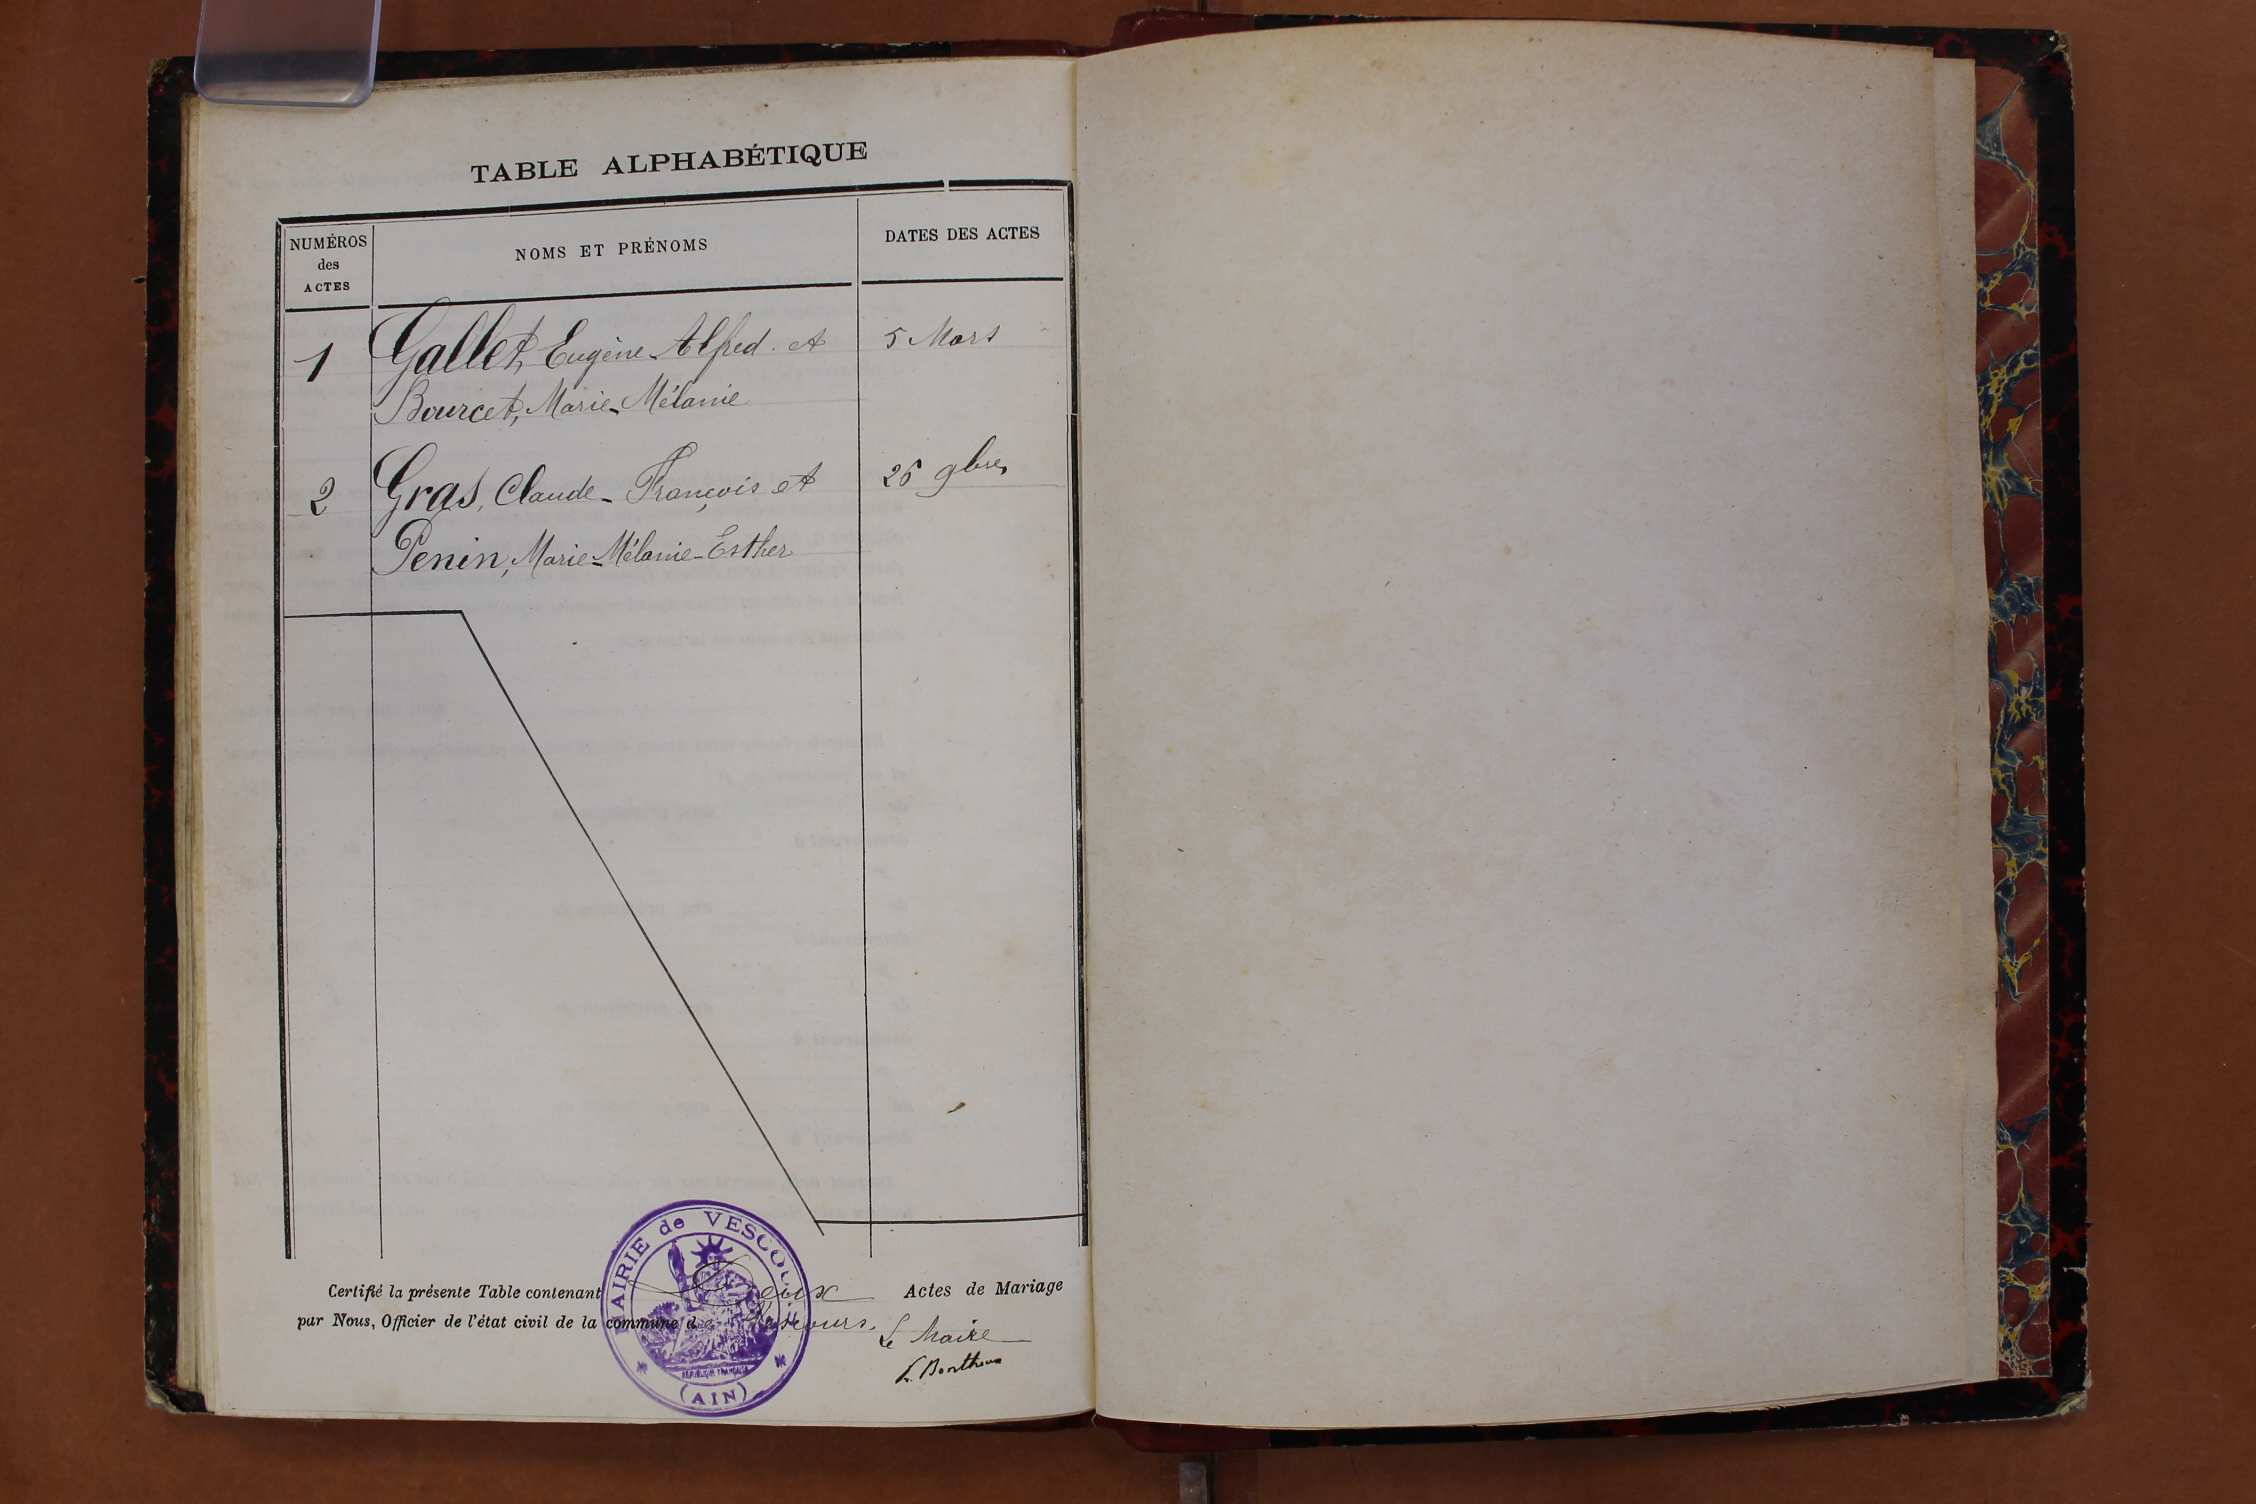 TABLE ALPHABÉTIQUE
NUMÉROS
des
ACTES
NOMS ET PRÉNOMS
DATES DES ACTES
1 Gallet, Eugène Alfred. et 5 Mars
Bourcet, Marie-Mélanie
2 Gras, Claude-François et 26 9bre
Penin, Marie-Mélanie-Esther
Certifié la présente Table contenant Deux Actes de Mariage
par Nous, Officier de l'état civil de la commune de Vescours.
Le Maire
MAIRIE de VESCOURS
RÉPUBLIQUE FRANÇAISE
(AIN)